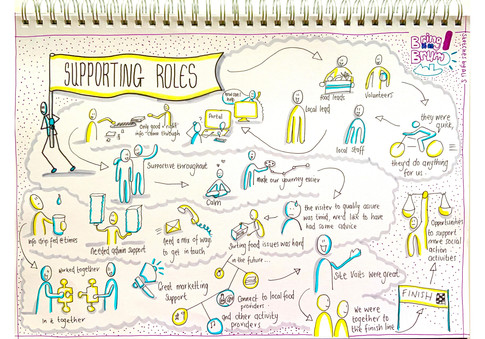 Bring it on
Brum!
SUPPORTING ROLES
How can I
help?
Portal
Only good stuff
came through
Lead lead
food leads
Volunteers
local staff
they were
quick,
they'd do anything
for us
Supportive throughout
Calm
made our journey easier
info drip fed @ times
Needed admin support
Need a mix of ways
to get in touch
Sorting food issues was hard
in the future...
the visitor to quality assure
was timid, would like to have
had some advice
Opportunities
to support
more social
action
activities
Worked together
In it together
Great marketing
support
Connect to local food
providers
and other activity
providers
Site Visits were great
We were
together to
the finish line
FINISH